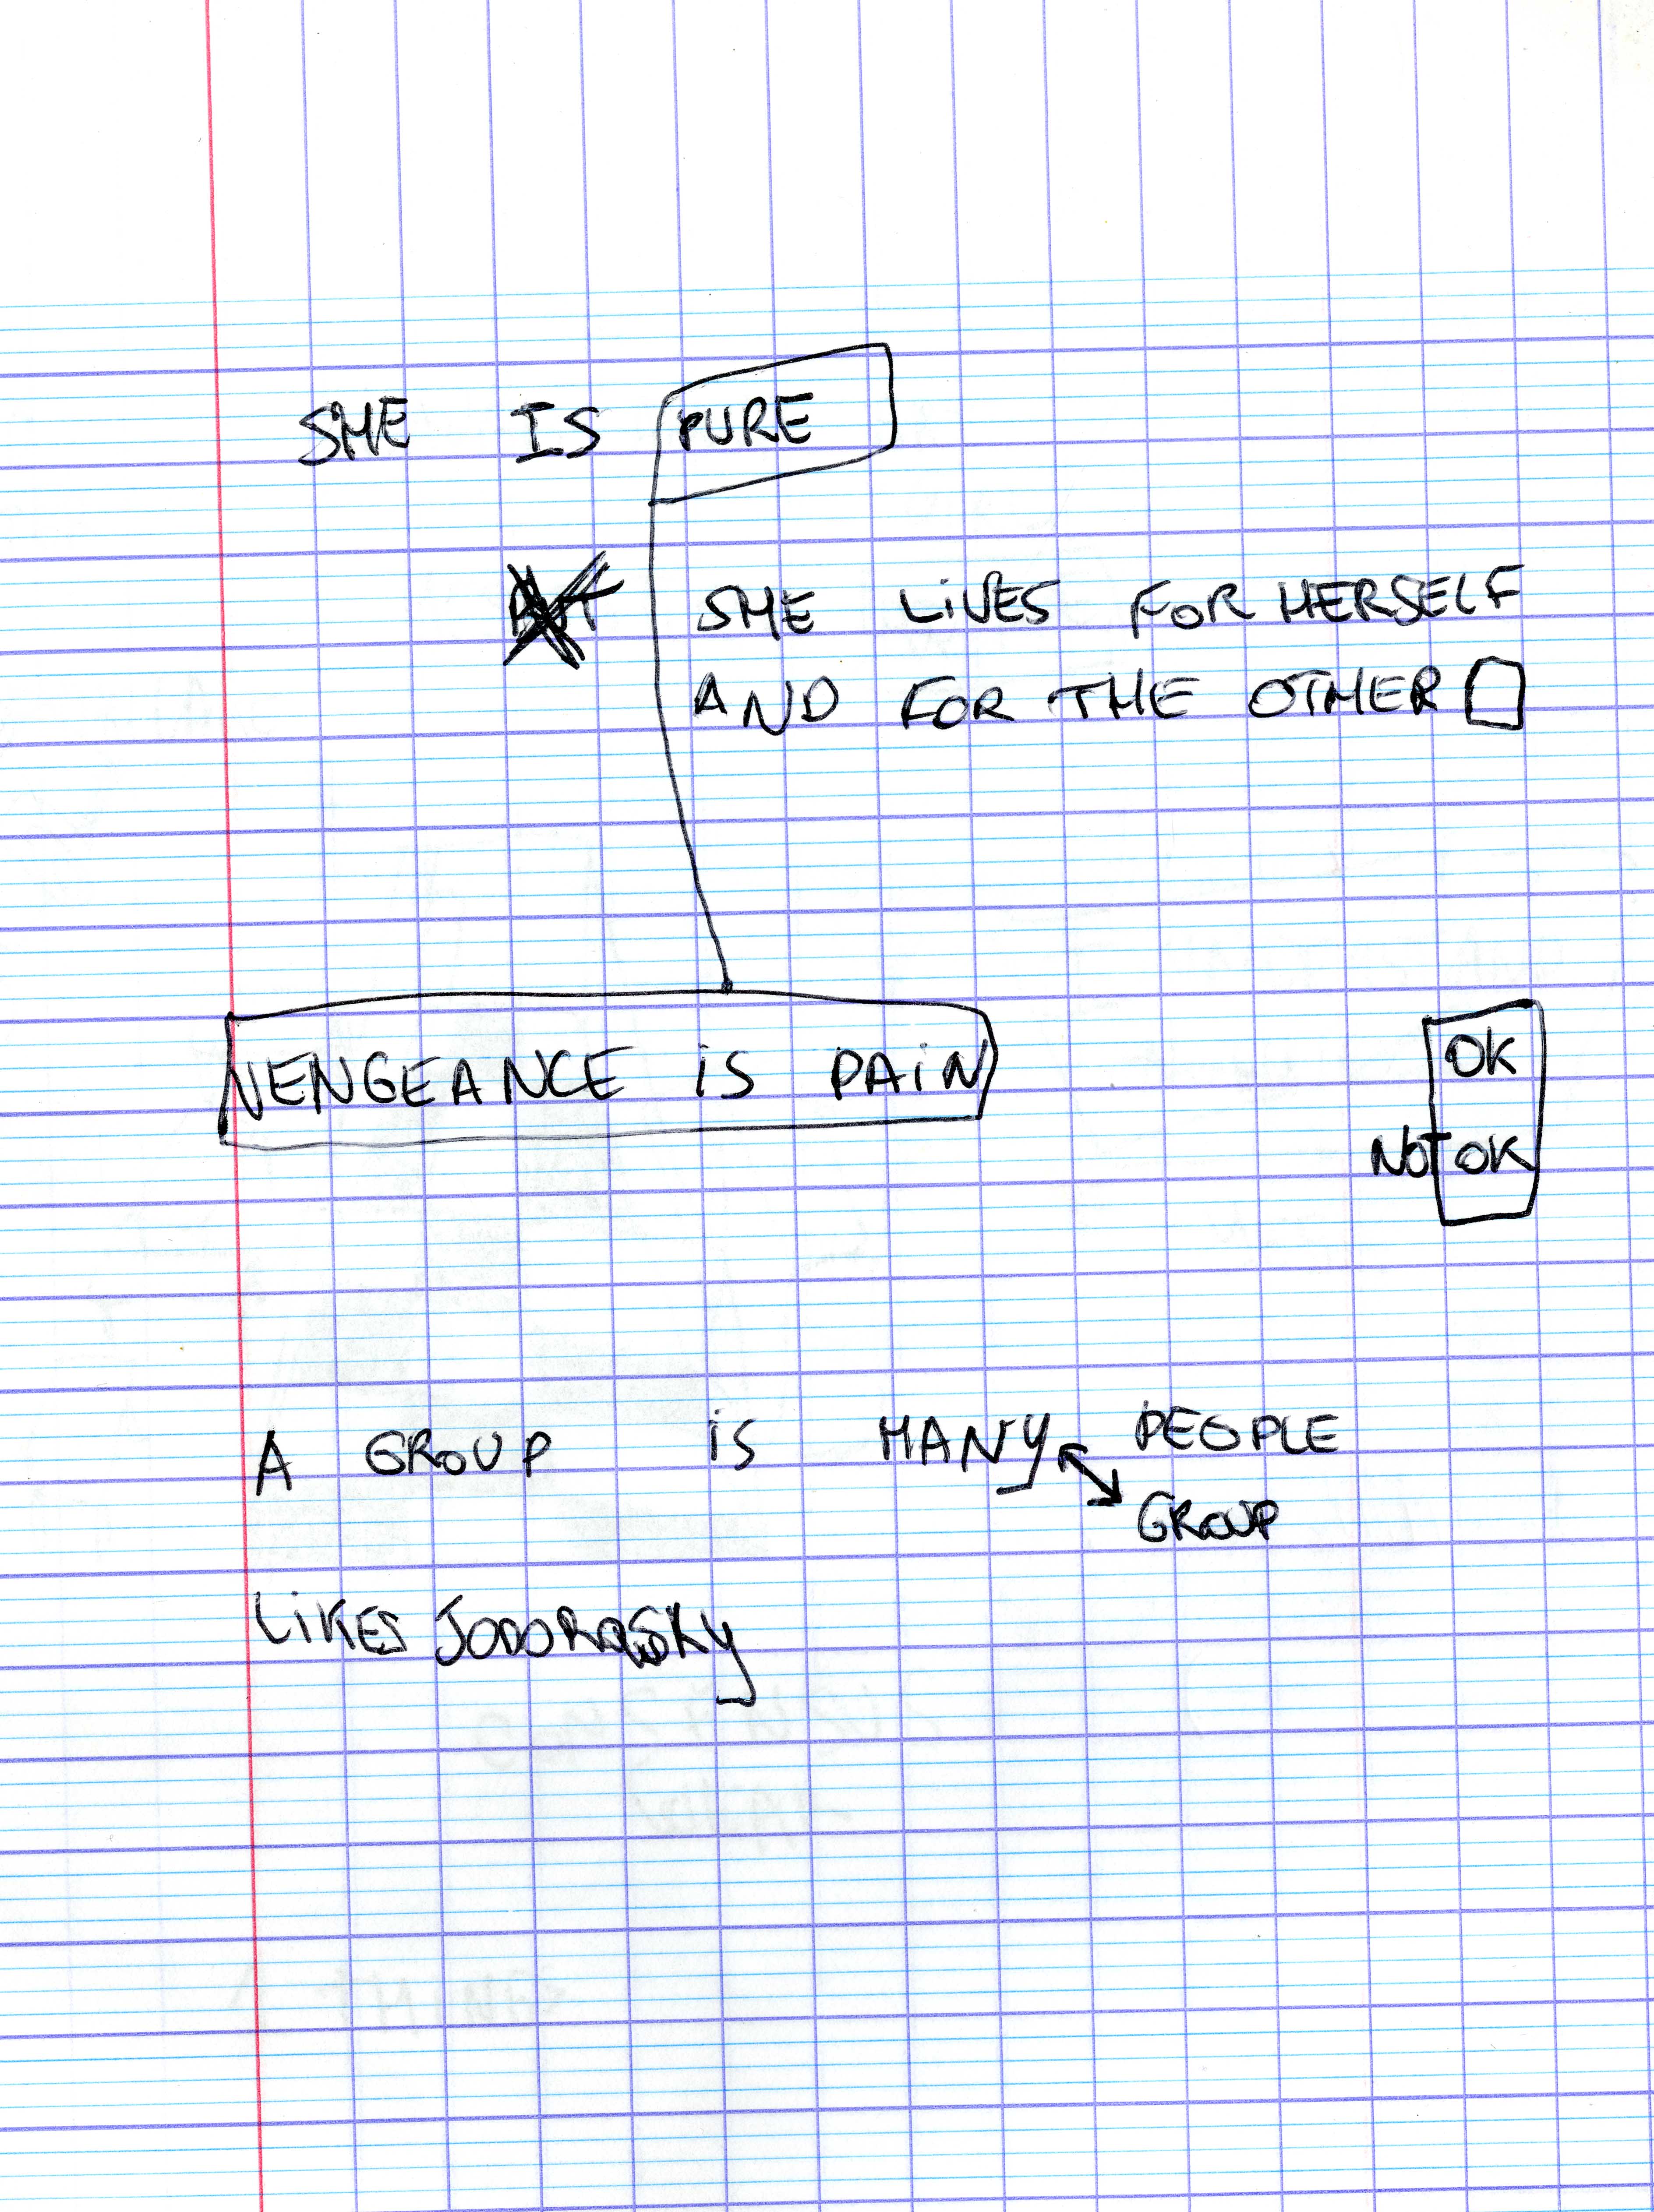 SHE IS PURE
SHE LiVES FOR HERSELF
AND FOR THE OTHER
VENGEANCE iS PAiN
OK
NOT OK
A GROUP iS MANY PEOPLE
GROUP
LiKES